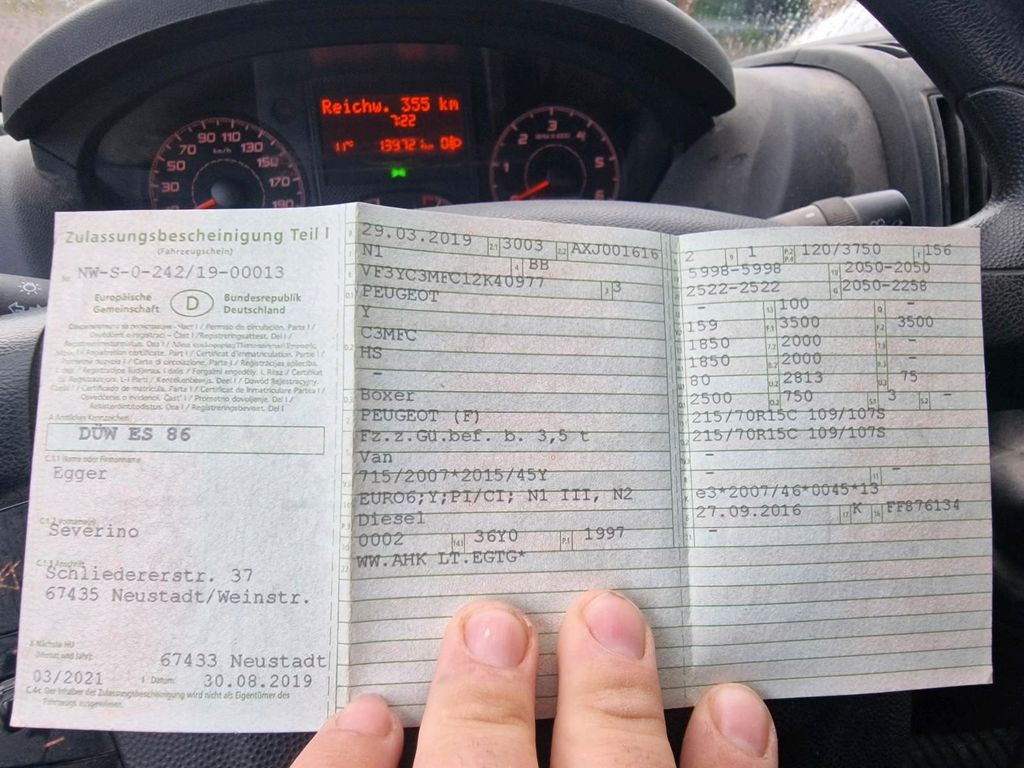 Reichw. 355 km
7:22
11° 13972 km
30 50 70 90 110 130 150 170 190
1 2 3 4 5 6
Zulassungsbescheinigung Teil I
(Fahrzeugschein)
Nr. NW-S-0-242/19-00013
Europäische Gemeinschaft D Bundesrepublik Deutschland
A Amtliches Kennzeichen
DÜW ES 86
C.1.1 Name oder Firmenname
Egger
C.1.2 Vorname(n)
Severino
C.1.3 Anschrift
Schliedererstr. 37
67435 Neustadt/Weinstr.
X Nächste HU
(Monat und Jahr)
67433 Neustadt
03/2021 I Datum: 30.08.2019
C.4c Der Inhaber der Zulassungsbescheinigung wird nicht als Eigentümer des
Fahrzeugs ausgewiesen.
B 29.03.2019 2.1 3003 2.2 AXJ001616
N1 4 BB
VF3YC3MFC12K40977 3 3
PEUGEOT
Y
C3MFC
HS
-
Boxer
PEUGEOT (F)
Fz.z.Gü.bef. b. 3,5 t
Van
715/2007*2015/45Y
EURO6;Y;PI/CI; N1 III, N2
Diesel
0002 14.1 36Y0 P.1 1997
WW.AHK LT.EGTG*
2 9 1 P.2 P.4 120/3750 T 156
5998-5998 2050-2050
2522-2522 G 2050-2258
- 100 -
159 F.1 3500 F.2 3500
1850 2000 -
1850 2000 -
80 U.2 2813 U.3 75
2500 750 S.1 3 S.2 -
215/70R15C 109/107S
215/70R15C 109/107S
-
- -
e3*2007/46*0045*13
27.09.2016 17 K 16 FF876134
-